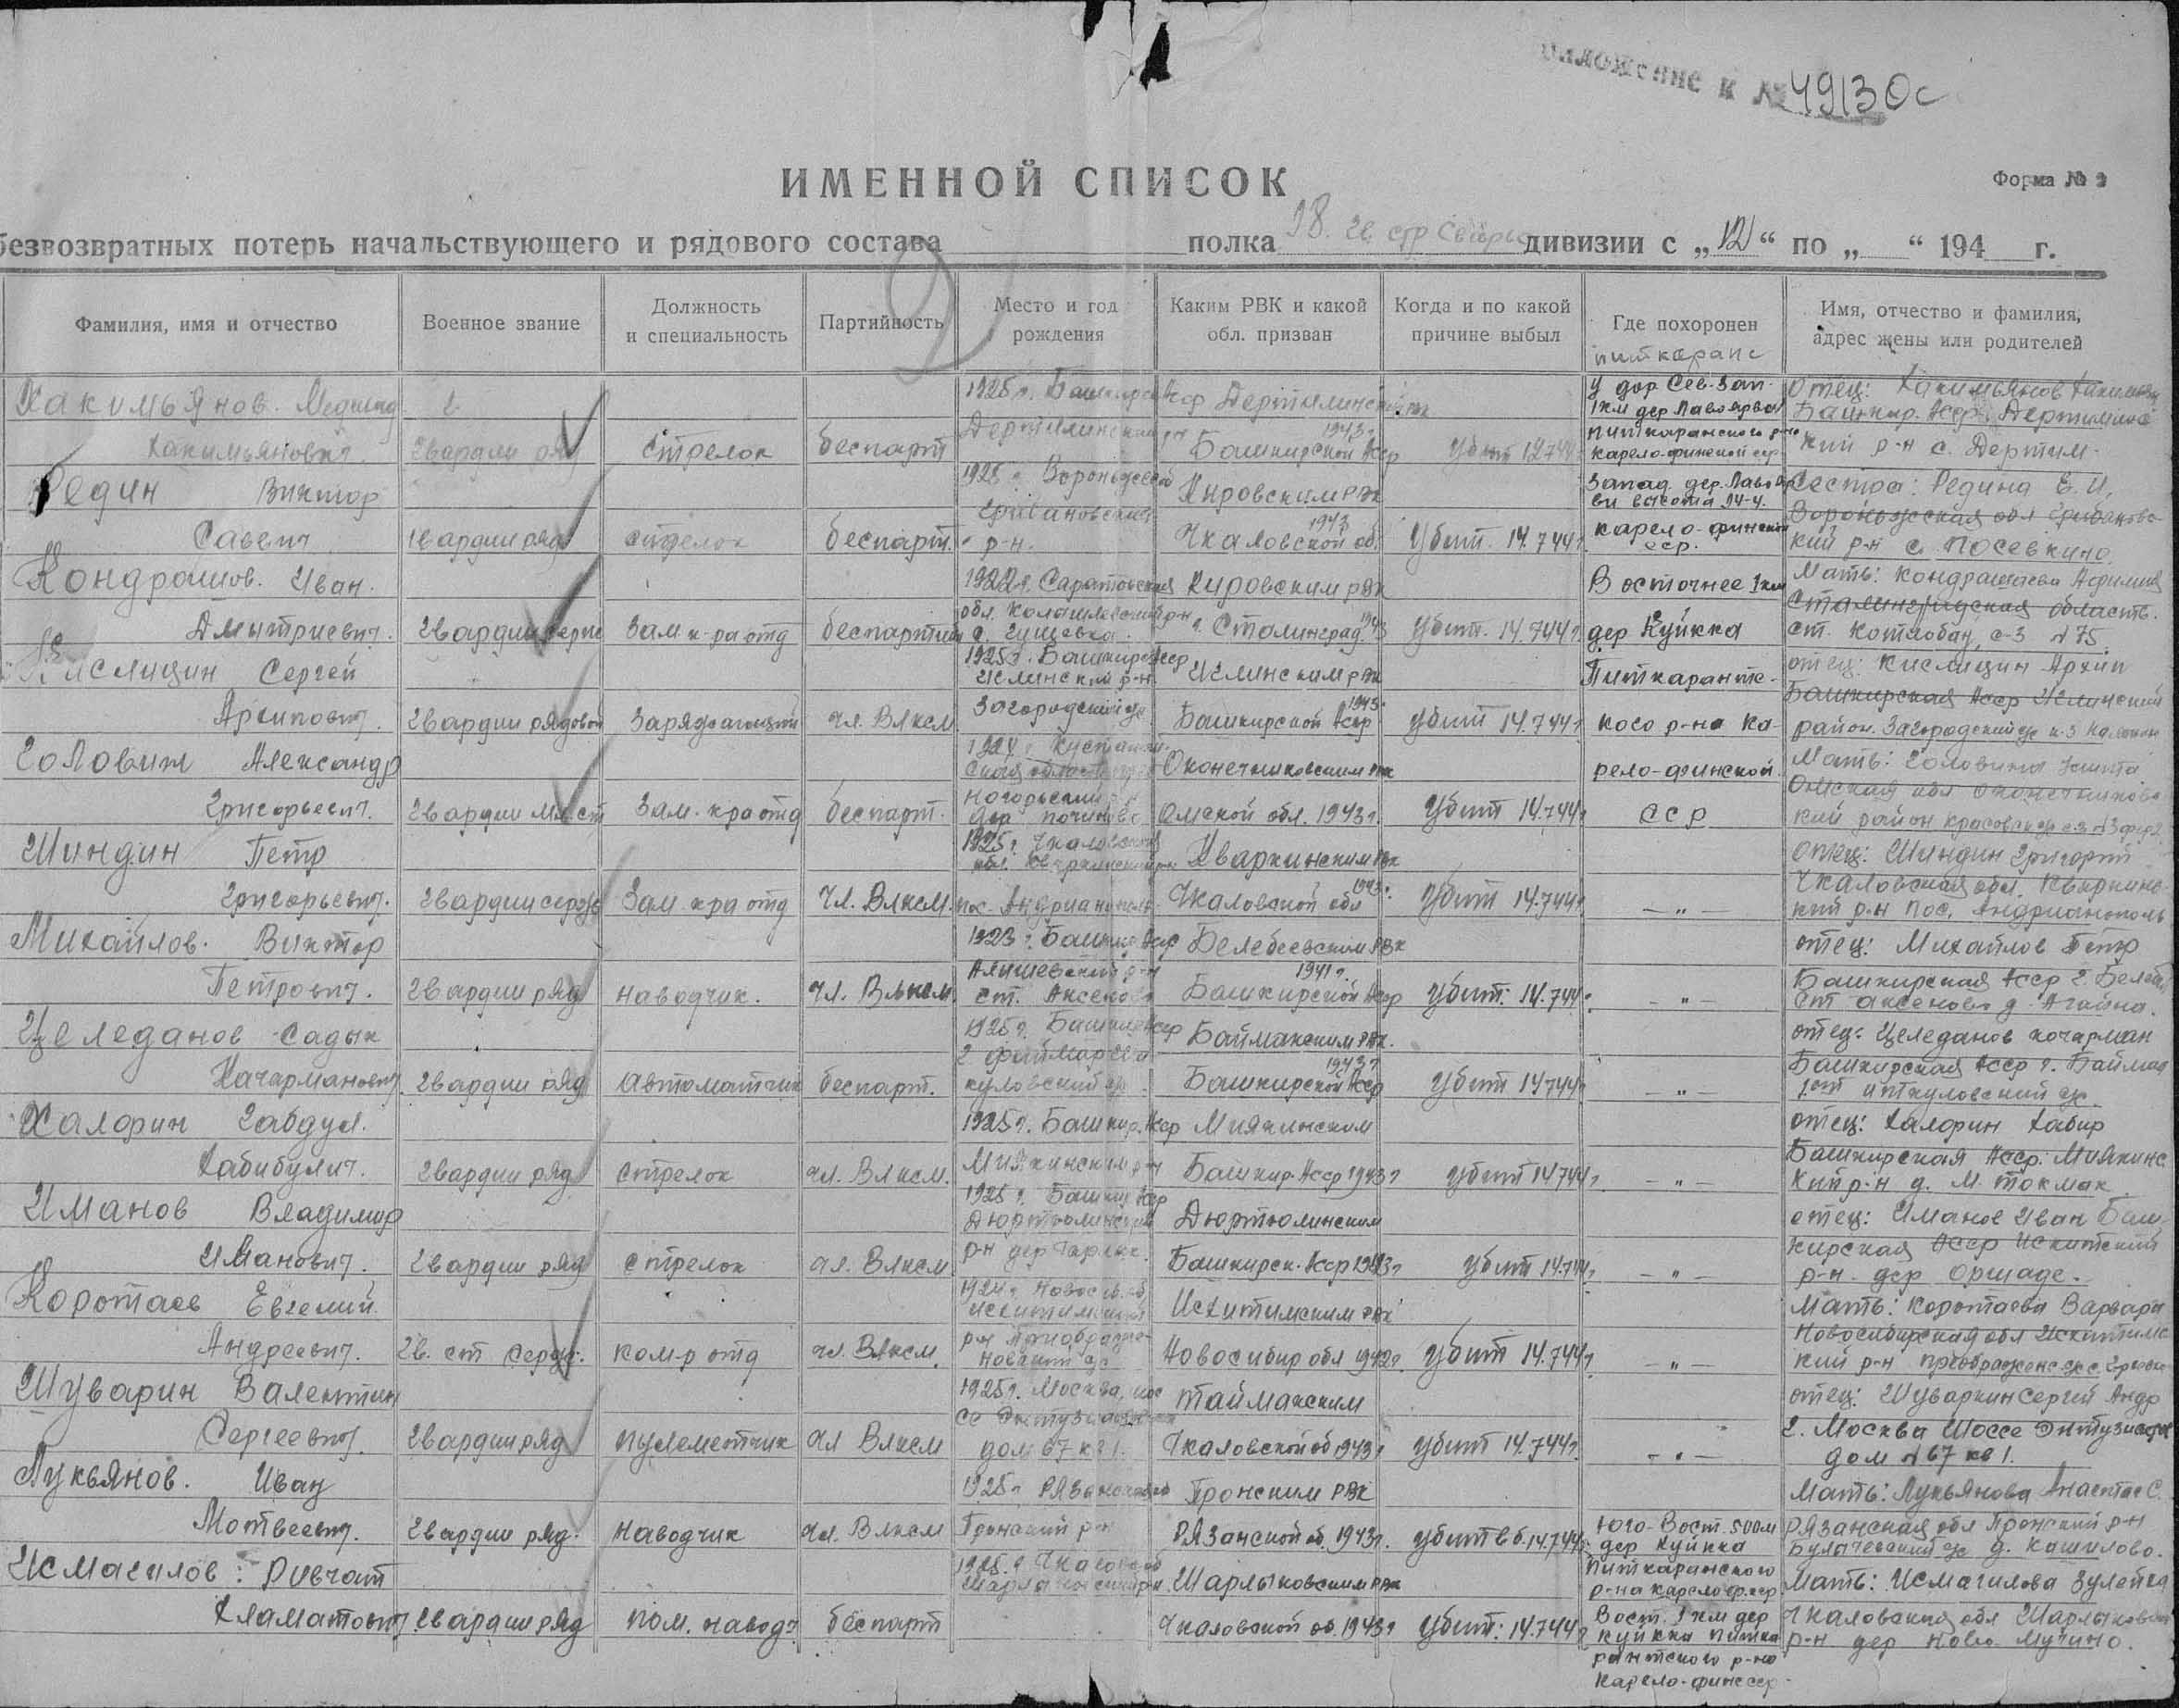 ожение к № 49130с
ИМЕННОЙ СПИСОК
Форма №
безвозвратных потерь начальствующего и рядового состава полка 98 гв стр Свирьс дивизии с „12“ по „ “ 194 г.
Фамилия, имя и отчество
Военное звание
Должность и специальность
Партийность
Место и год рождения
Каким РВК и какой обл. призван
Когда и по какой причине выбыл
Где похоронен
Имя, отчество и фамилия, адрес жены или родителей
Хакимьянов
Хакимьянович гвардии ряд стрелок беспарт
1925 г. Башкирск Асср
Башкирской Асср 1943 г
Убит 12.7.44
у дор Сев-Зап-
1 км дер Лавоярви
Питкаранского р-на
карело-финской сср
отец: Хакимьянов
Башкир. Асср.
кий р-н с. Дертюм-
Редин Виктор
Савельич гвардии ряд стрелок беспарт.
р-н.
Кировским РВК
Чкаловской об. 1943
Убит. 14.7.44 г.
Запад. дер. Лавояр
ви высота 14-4.
карело-финской
сср.
Сестра: Редина Е. И.
Воронежская обл
кий р-н с. Посевкино
Кондрашов. Иван.
Дмытриевич. гвардии серж Зам. к-ра отд беспартий
1922 г. Саратовская
Кировским РВК
г. Сталинград 1943
Убит. 14.7.44 г.
Восточнее 1 км
дер Куйкка
Питкарантс-
кого р-на Ка-
рело-финской
ССР
Мать: Кондрашаева
Сталинградская область.
ст. Котлобан, с-з №75
Кислицин Сергей
Архипович. гвардии рядовой Заряжающий чл. Влксм
1925 г. Башкирс Асср
Иглинский р-н
Загородский с/с
Иглинским РВК
Башкирской Асср 1943
Убит 14.7.44 г
отец: Кислицин Архип
Башкирская Асср Иглинский
район. Загородский с/с
Головин Александр
Григорьевич. гвардии мл. ст Зам. к-ра отд беспарт.
Оконешниковским РВК
Омской обл. 1943 г.
Убит 14.7.44 г
Мать: Головина
Омская обл Оконешниковс
кий район
Шиндин Петр
Григорьевич. гвардии серж Зам. к-ра отд чл. Влксм.
1925 г. Чкаловская
пос. Андрианополь
Кваркинским РВК
Чкаловской обл 1943 г.
Убит 14.7.44 г
— " —
отец: Шиндин Григорий
Чкаловская обл. Кваркинс-
кий р-н пос. Андрианополь
Михайлов. Виктор
Петрович. гвардии ряд наводчик. чл. Влксм.
1923 г. Башкир Асср
ст. Аксеново
Белебеевским РВК
1941 г.
Башкирской Асср
Убит. 14.7.44 г.
— " —
отец: Михайлов Петр
Башкирская Асср г. Белеб
ст Аксеново д.
Целеданов Садык
Качарманович гвардии ряд Автоматчик беспарт.
1925 г.
Баймакским РВК.
1943 г
Башкирской Асср
Убит 14.7.44 г.
— " —
отец: Целеданов Кочарман
Башкирская Асср г. Баймак
иткуловский с/с.
Халфин Габдул.
Хабибулич. гвардии ряд Стрелок чл. Влксм.
1925 г. Башкир. Асср
Миякинским р-н
Миякинским
Башкир. Асср 1943 г
Убит 14.7.44 г.
— " —
отец: Халфин Хабир
Башкирская Асср. Миякинс
кий р-н д. М. Токмак
Иманов Владимир
Иманович. гвардии ряд Стрелок чл. Влксм
1925 г. Башкир Асср
Дюртюлинский
Дюртюлинским
Башкирск. Асср 1943 г
Убит 14.7.44 г
— " —
отец: Иманов Иван Баш-
кирская Асср
р-н. дер
Коротаев Евгений
Андреевич. Гв. ст серж. ком-р отд чл. Влксм.
1924 г. Новосиб. об
Искитимский
Искитимским РВК
Новосибир обл 1942 г.
Убит 14.7.44 г
— " —
Мать: Коротаева Варвара
Новосибирская обл Искитимс
кий р-н
Шуварин Валентин
Сергеевич. гвардии ряд пулеметчик чл Влксм
1925 г. Москва, шос
се Энтузиастов
дом 67 кв 1.
Таймакским
Чкаловской об 1943 г
Убит 14.7.44 г.
— " —
отец: Шуваркин Сергей Андр
г. Москва Шоссе Энтузиастов
дом №67 кв 1.
Лукьянов. Иван
Мотвеевич. гвардии ряд. наводчик чл. Влксм
1925 г. Рязанской об
Пронский р-н
Пронским РВК
Рязанской об. 1943 г.
убит в б. 14.7.44 г.
Юго-Вост. 500 м
дер Куйкка
Питкаранского
р-на карело-ф. сср
Мать: Лукьянова Анастас С.
Рязанская обл Пронский р-н
Булачевский с/с д. Кашилово.
Исмагилов: Ривчат
Хламатович гвардии ряд пом. навод. беспарт
1925 г. Чкаловс об
Шарлыковским РВК
Чкаловской об. 1943 г
Убит: 14.7.44 г
Вост. 1 км дер
Куйкка Питка
рантского р-на
Карело-фин сср
Мать: Исмагилова Зулейха
Чкаловская обл Шарлыковский
р-н дер Ново-Мусино.